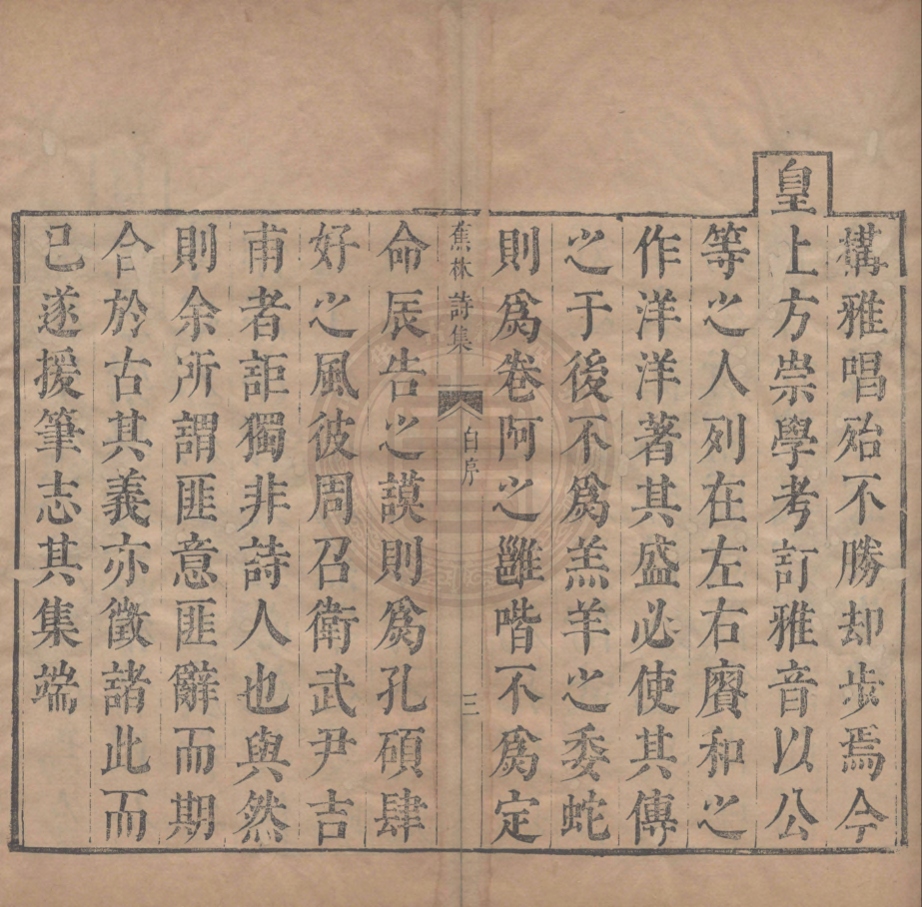 構雅唱殆不勝却步焉今
皇上方崇學考訂雅音以公
等之人列在左右賡和之
作洋洋著其盛必使其傳
之于後不爲羔羊之委蛇
則爲卷阿之雝喈不爲定
蕉林詩集 自序 三
命辰告之謨則爲孔碩肆
好之風彼周召衛武尹吉
甫者詎獨非詩人也與然
則余所謂匪意匪辭而期
合於古其義亦徵諸此而
已遂援筆志其集端